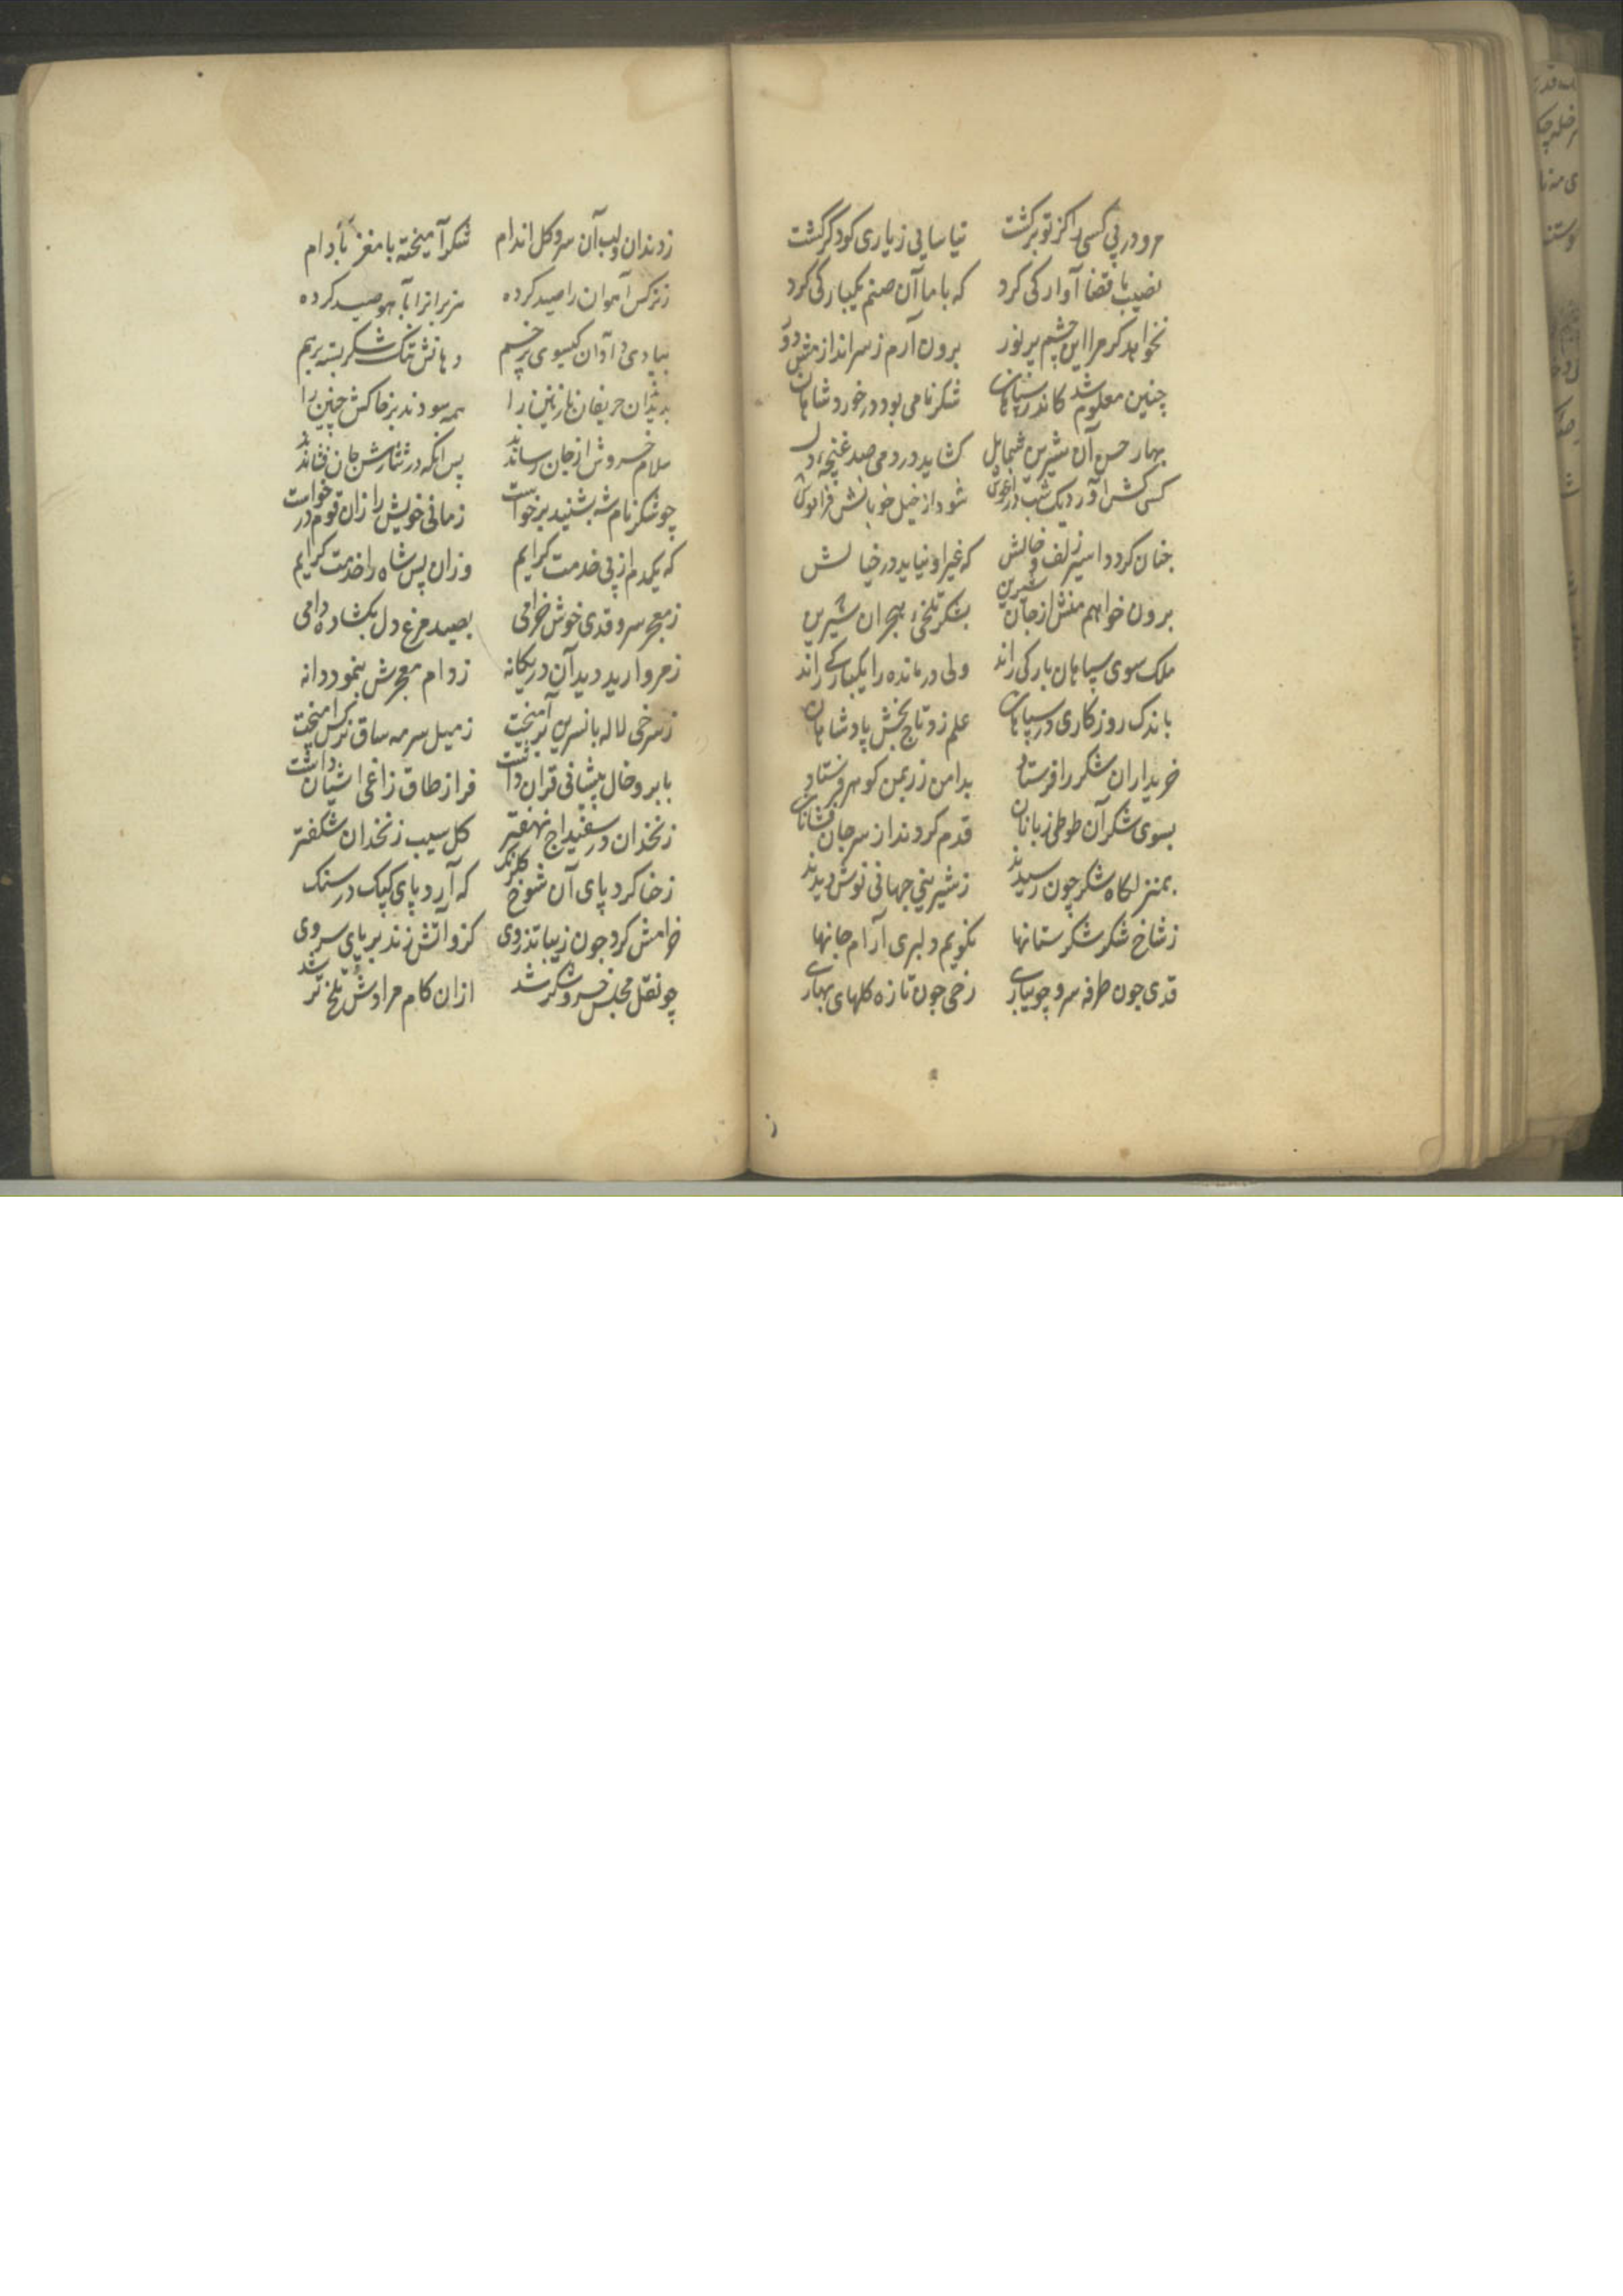 مرو در پی کسی را کز تو برگشت نیاسایی ز یاری کو دگر گشت
نصیب ما قضا آوارکی کرد که با ما آن صنم یکبارکی کرد
نخواهد کر مرا این چشم پر نور برون آرم ز سر اندازمش دور
چنین معلوم شد کاندر سپاهان شکر نامی بود در خورد شاهان
بهار حسن آن شیرین شمایل کشاید در دمی صد غنچه دل
کسی کش آورد یک شب در آغوش شود از خیل خوبانش فراموش
چنان کردد اسیر زلف و خالش که غیر او نیاید در خیالش
برون خواهم منش از جان شیرین بشکر تلخی هجران شیرین
ملک سوی سپاهان بارکی راند ولی درمانده را یکبارکی راند
باندک روزکاری در سپاهان علم زد تاج بخش پادشاهان
خریداران شکر را فرستاد بدامن زر بمن کوهر فرستاد
بسوی شکر آن طوطی زبانان قدم کردند از سر جان فشانان
بمنزلکاه شکر چون رسیدند ز شیرینی جهانی نوش دیدند
ز شاخ شکر شکرستانها نکویم دلبری آرام جانها
قدی چون طرفه سرو جویباری رخی چون تازه کلهای بهاری
ز دندان و لب آن سرو کل اندام شکر آمیخته با مغز بادام
ز نرکس آهوان را صید کرده هزبرانرا بآهو صید کرده
کیسوی پر خم دهانش تنک شکر بسته بر هم
بدیدند آن حریفان نازنین را همه سودند بر خاکش جبین را
سلام خسروش از جان رساندند پس آنکه در نثارش جان فشاندند
چو شکر نام شه بشنید برخواست زمانی خویش را زان قوم درخواست
که یکدم از پی خدمت کرایم وزان پس شاه را خدمت کرایم
ز معجر سرو قدی خوش خرامی بصید مرغ دل بکشاده دامی
ز مروارید دید آن در یکانه ز دام معجرش بنمود دانه
ز سرخی لاله با نسرین بر آمیخت ز میل سرمه ساق نرکس امیخت
بابرو خال پیشانی قران داشت فراز طاق زاغی اشیان داشت
زنخدان در سفیداج نهفته کل سیب زنخدان شکفته
ز حنا کرد پای آن شوخ کلرنک که آرد پای کبک در سنک
خرامش کرد چون زیبا تذروی کزو آتش زند بر پای سروی
چو نقل مجلس خسرو شکر شد ازان کام مرادش تلخ تر شد